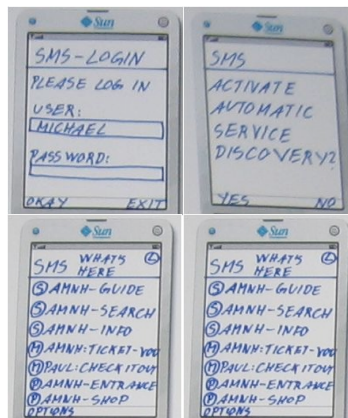 Sun
SMS-LOGIN
PLEASE LOG IN
USER:
MICHAEL
PASSWORD:
OKAY EXIT
Sun
SMS
ACTIVATE
AUTOMATIC
SERVICE
DISCOVERY?
YES NO
Sun
SMS WHATS HERE L
S AMNH-GUIDE
S AMNH-SEARCH
S AMNH-INFO
M AMNH:TICKET-VOU
M PAUL:CHECK IT OUT
P AMNH-ENTRANCE
P AMNH-SHOP
OPTIONS
Sun
SMS WHATS HERE L
S AMNH-GUIDE
S AMNH-SEARCH
S AMNH-INFO
M AMNH:TICKET-VOU
M PAUL:CHECK IT OUT
P AMNH-ENTRANCE
P AMNH-SHOP
OPTIONS